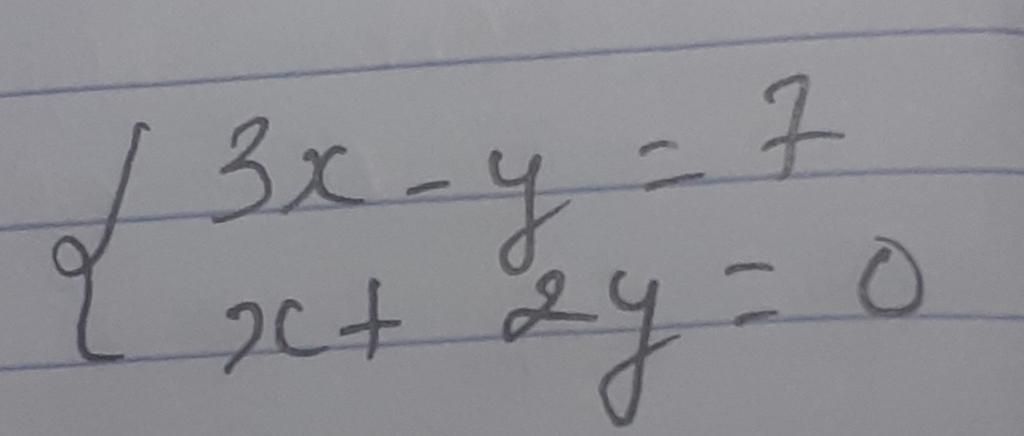 3x - y = 7
x + 2y = 0